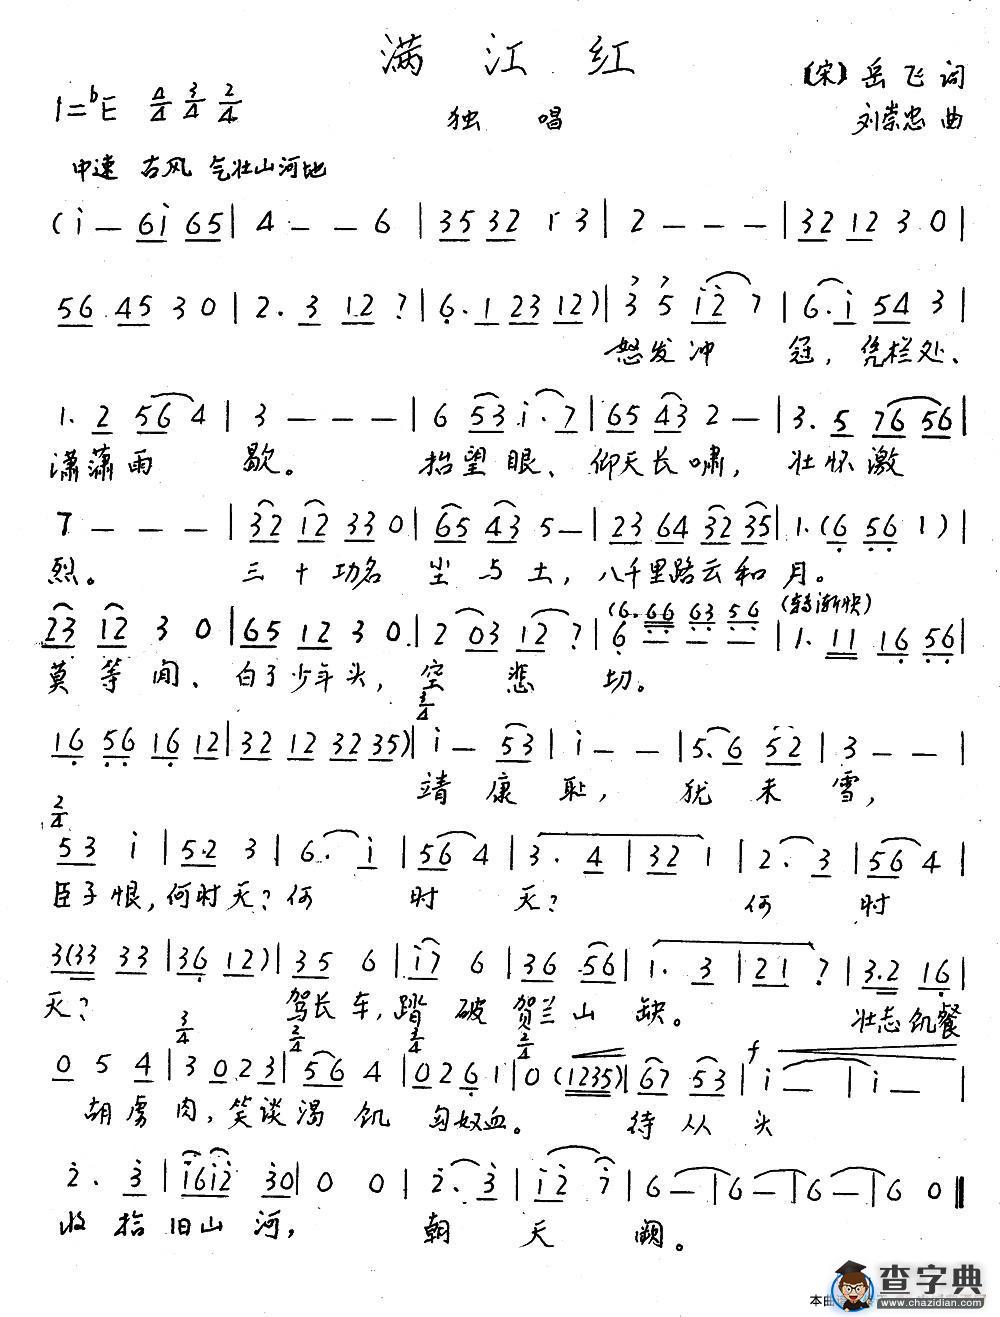 满江红
〔宋〕岳飞词
1=♭E 4/4 3/4 2/4
独唱
刘崇忠曲
中速 古风 气壮山河地
(i — 6i 65 | 4 — — 6 | 35 32 1 3 | 2 — — — | 32 12 3 0 |
56 45 3 0 | 2. 3 12 7 | 6. 1 23 12) | 3 5 i2 7 | 6. i 54 3 |
怒发冲冠，凭栏处、
1. 2 56 4 | 3 — — — | 6 53 i. 7 | 65 43 2 — | 3. 5 76 56 |
潇潇雨歇。抬望眼、仰天长啸，壮怀激
7 — — — | 32 12 33 0 | 65 43 5 — | 23 64 32 35 | 1. (6 56 1) |
烈。三十功名尘与土，八千里路云和月。
(6. 66 63 56 (转渐快)
23 12 3 0 | 65 12 3 0 | 2 03 12 7 | 6 — — — | 1. 11 16 56 |
莫等闲、白了少年头，空悲切。
3/4
16 56 16 12 | 32 12 32 35) | i — 53 | i — — | 5. 6 52 | 3 — — |
靖康耻，犹未雪，
2/4
53 i | 5.2 3 | 6. i | 56 4 | 3. 4 | 32 1 | 2. 3 | 56 4 |
臣子恨，何时灭？何时灭？何时
3(33 33 | 36 12) | 35 6 | i7 6 | 36 56 | 1. 3 | 21 7 | 3.2 16 |
灭？驾长车，踏破贺兰山缺。壮志饥餐
3/4 2/4 3/4 2/4
0 5 4 | 3 023 | 56 4 | 026 1 | 0 (1235) | 67 53 | f i — | i — |
胡虏肉，笑谈渴饥匈奴血。待从头
2. 3 | i6i2 30 | 0 0 | 2. 3 | i2 7 | 6 — | 6 — | 6 — | 6 0 ‖
收拾旧山河，朝天阙。
本曲
查字典
www.chazidian.com